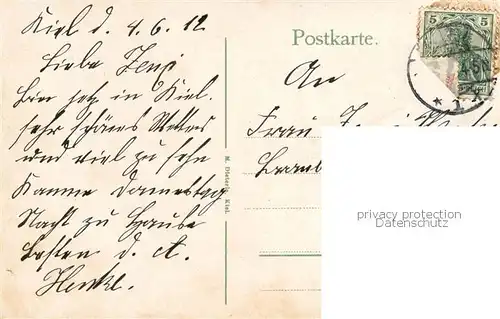 Kiel d. 4.6.12
Postkarte.
5
Liebe Zenzi
An
Bin jetzt in Kiel.
sehr schönes Wetter
und viel zu sehn
Komme Donnerstag
Nacht zu Hause
Besten d. A.
Frau
M. Dieterle, Kiel.
privacy protection
Datenschutz